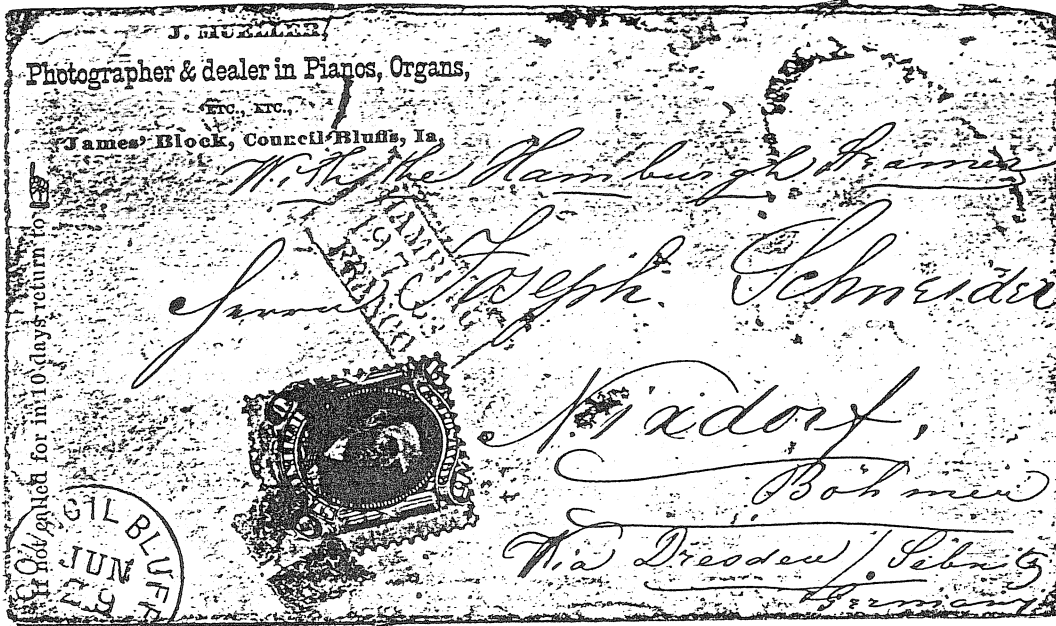 J. MUELLER,
Photographer & dealer in Pianos, Organs,
ETC., ETC.,
James' Block, Council Bluffs, Ia.
If not called for in 10 days return to
With the Hamburgh Steamer
Herrn Joseph Schneider
Nixdorf,
Böhmen
Via Dresden / Sebnitz
Germany
HAMBURG
FRANCO
COUNCIL BLUFFS
JUN